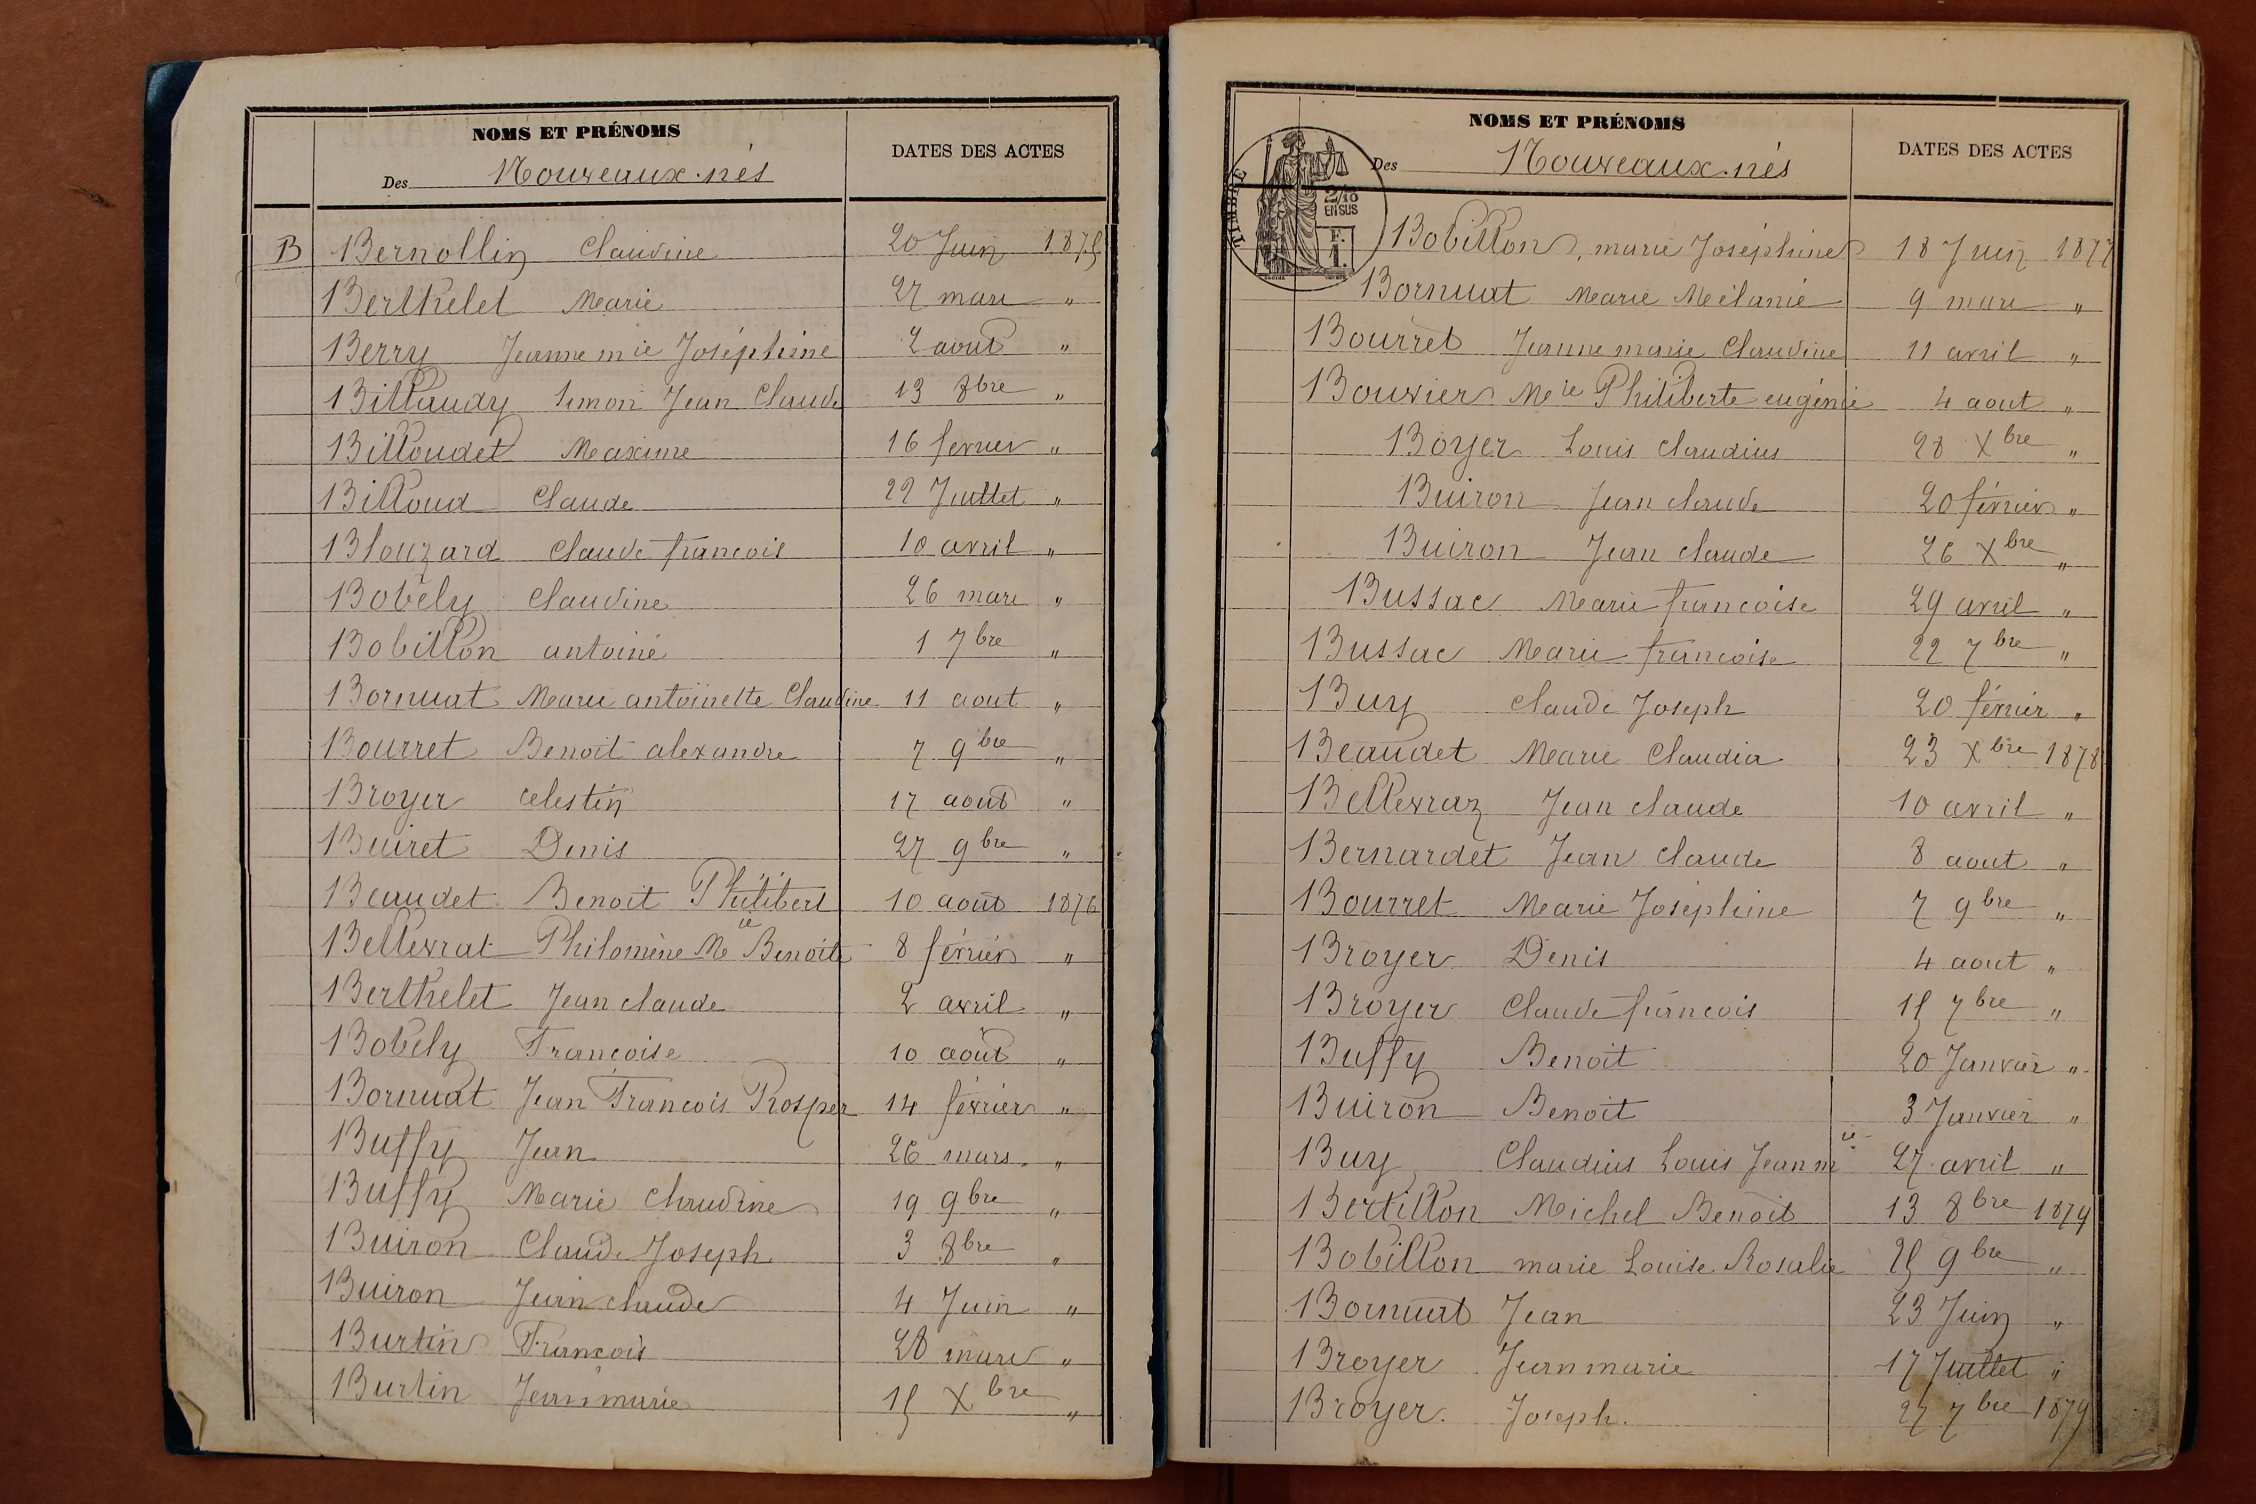 NOMS ET PRÉNOMS
DATES DES ACTES
Des Nouveaux-nés
B Bernollin Claudine 20 Juin 1875
Berthelet Marie 27 mars "
Berry Jeanne mie Joséphine 2 aout "
Billaudy Simon Jean Claude 13 8bre "
Billoudet Maxime 16 fevrier "
Billoud Claude 22 Juillet "
Blouzard Claude francois 10 avril "
Bobély Claudine 26 mars "
Bobillon antoine 1 7bre "
Bornuat Marie antoinette Claudine 11 aout "
Bourret Benoit alexandre 7 9bre "
Broyer celestin 17 aout "
Buiret Denis 27 9bre "
Beaudet Benoit Philibert 10 aout 1876
Bellevrat Philomène Mie Benoite 8 février "
Berthelet Jean claude 2 avril "
Bobély Françoise 10 aout "
Bornuat Jean François Prosper 14 février "
Buffy Jean 26 mars "
Buffy Marie Claudine 19 9bre "
Buiron Claude Joseph 3 8bre "
Buiron Jean claude 4 Juin "
Burtin François 28 mars "
Burtin Jean marie 15 Xbre "
NOMS ET PRÉNOMS
DATES DES ACTES
Des Nouveaux-nés
TIMBRE
2/10
EN SUS
F.
1.
Bobillon, marie Joséphine 18 Juin 1877
Bornuat Marie Mélanie 9 mars "
Bourret Jeanne marie Claudine 11 avril "
Bouvier Mie Philiberte eugénie 4 aout "
Boyer Louis Claudius 28 Xbre "
Buiron Jean claude 20 février "
Buiron Jean claude 26 Xbre "
Bussac Marie francoise 29 avril "
Bussac Marie francoise 22 7bre "
Buy Claude Joseph 20 février "
Beaudet Marie Claudia 23 Xbre 1878
Bellevraz Jean claude 10 avril "
Bernardet Jean claude 8 aout "
Bourret Marie Joséphine 7 9bre "
Broyer Denis 4 aout "
Broyer Claude françois 15 7bre "
Buffy Benoit 20 Janvier "
Buiron Benoit 3 Janvier "
Buy Claudius Louis Jean mie 27 avril "
Bertillon Michel Benoit 13 8bre 1879
Bobillon marie Louise Rosalie 25 9bre "
Bornuat Jean 23 Juin "
Broyer Jean marie 17 Juillet "
Broyer. Joseph. 27 7bre 1879